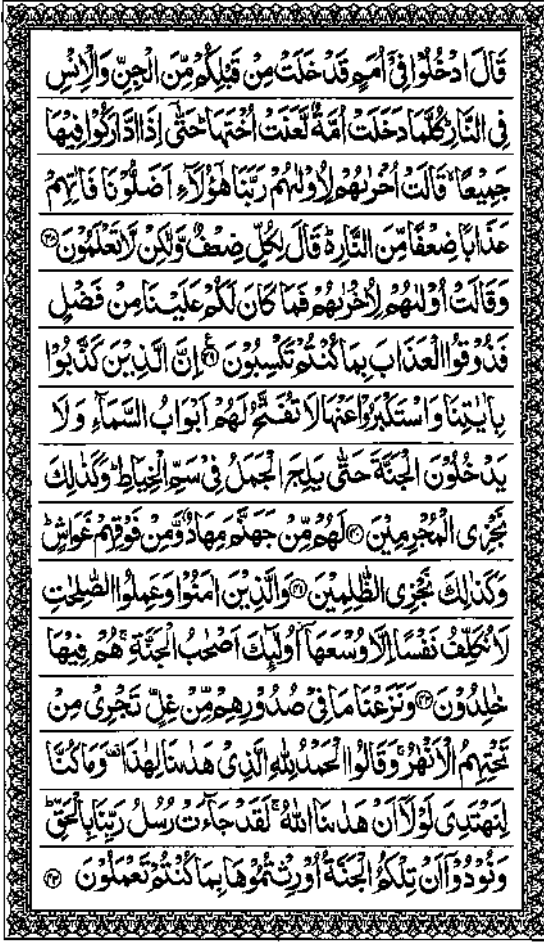 قَالَ ادْخُلُوْا فِیْۤ اُمَمٍ قَدْ خَلَتْ مِنْ قَبْلِكُمْ مِّنَ الْجِنِّ وَالْاِنْسِ
فِی النَّارِ ؕ كُلَّمَا دَخَلَتْ اُمَّةٌ لَّعَنَتْ اُخْتَهَا ؕ حَتّٰۤی اِذَا ادَّارَكُوْا فِیْهَا
جَمِیْعًا ۙ قَالَتْ اُخْرٰىهُمْ لِاُوْلٰىهُمْ رَبَّنَا هٰۤؤُلَآءِ اَضَلُّوْنَا فَاٰتِهِمْ
عَذَابًا ضِعْفًا مِّنَ النَّارِ ؕ قَالَ لِكُلٍّ ضِعْفٌ وَّلٰكِنْ لَّا تَعْلَمُوْنَ ۝۳۸
وَقَالَتْ اُوْلٰىهُمْ لِاُخْرٰىهُمْ فَمَا كَانَ لَكُمْ عَلَیْنَا مِنْ فَضْلٍ
فَذُوْقُوا الْعَذَابَ بِمَا كُنْتُمْ تَكْسِبُوْنَ ۝۳۹ اِنَّ الَّذِیْنَ كَذَّبُوْا
بِاٰیٰتِنَا وَاسْتَكْبَرُوْا عَنْهَا لَا تُفَتَّحُ لَهُمْ اَبْوَابُ السَّمَآءِ وَلَا
یَدْخُلُوْنَ الْجَنَّةَ حَتّٰی یَلِجَ الْجَمَلُ فِیْ سَمِّ الْخِیَاطِ ؕ وَكَذٰلِكَ
نَجْزِی الْمُجْرِمِیْنَ ۝۴۰ لَهُمْ مِّنْ جَهَنَّمَ مِهَادٌ وَّمِنْ فَوْقِهِمْ غَوَاشٍ ؕ
وَكَذٰلِكَ نَجْزِی الظّٰلِمِیْنَ ۝۴۱ وَالَّذِیْنَ اٰمَنُوْا وَعَمِلُوا الصّٰلِحٰتِ
لَا نُكَلِّفُ نَفْسًا اِلَّا وُسْعَهَاۤ ؗ اُولٰٓىِٕكَ اَصْحٰبُ الْجَنَّةِ ۚ هُمْ فِیْهَا
خٰلِدُوْنَ ۝۴۲ وَنَزَعْنَا مَا فِیْ صُدُوْرِهِمْ مِّنْ غِلٍّ تَجْرِیْ مِنْ
تَحْتِهِمُ الْاَنْهٰرُ ۚ وَقَالُوا الْحَمْدُ لِلّٰهِ الَّذِیْ هَدٰىنَا لِهٰذَا ۫ وَمَا كُنَّا
لِنَهْتَدِیَ لَوْلَاۤ اَنْ هَدٰىنَا اللّٰهُ ۚ لَقَدْ جَآءَتْ رُسُلُ رَبِّنَا بِالْحَقِّ ؕ
وَنُوْدُوْۤا اَنْ تِلْكُمُ الْجَنَّةُ اُوْرِثْتُمُوْهَا بِمَا كُنْتُمْ تَعْمَلُوْنَ ۝۴۳